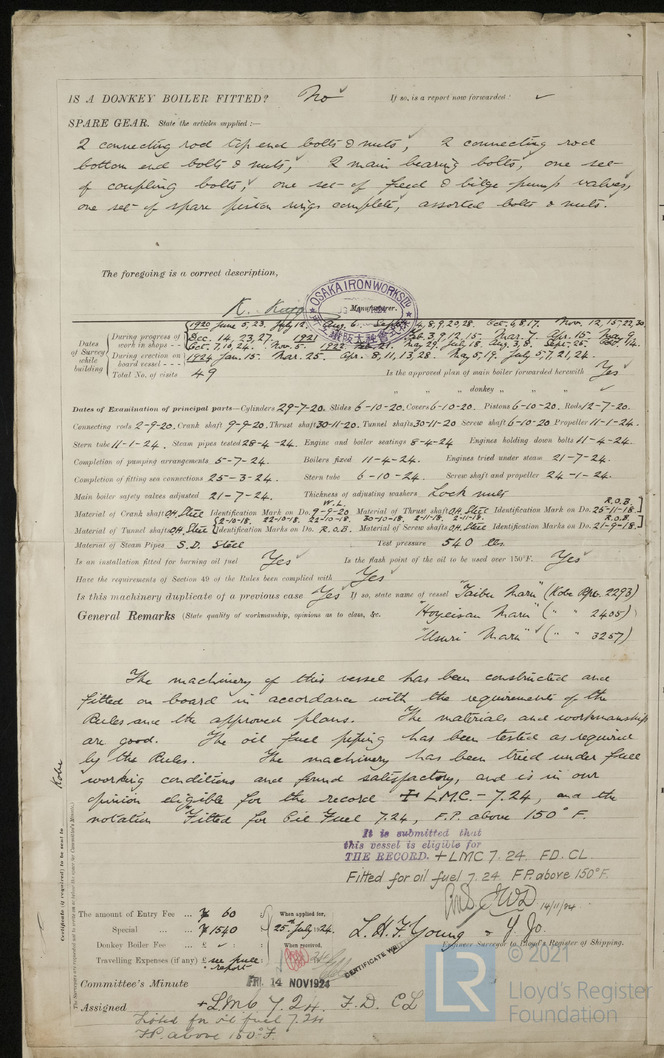 IS A DONKEY BOILER FITTED? No If so, is a report now forwarded? ✓
SPARE GEAR. State the articles supplied :—
2 connecting rod top end bolts & nuts, 2 connecting rod
bottom end bolts & nuts, 2 main bearing bolts, one set
of coupling bolts, one set of feed & bilge pump valves,
one set of spare piston rings complete, assorted bolts & nuts.
The foregoing is a correct description,
OSAKA IRON WORKS LTD
Manufacturer.
Dates of Survey while building
During progress of work in shops - -
1920 June 5, 23, July 12, Aug. 6. Sept. 4, 6, 8, 9, 20, 28. Oct. 6, 8, 17. Nov. 12, 15, 22, 30.
Dec. 14, 23, 27. 1921 3, 9, 12, 15. Mar. 7. Apr. 15. Nov. 9.
Oct. 7, 10, 24. Nov. 5. 1922 Feb. 21. May 29. July 18. Aug. 3, 8. Sept. 25. Oct. 14.
During erection on board vessel - - -
1924 Jan. 15. Mar. 25. Apr. 8, 11, 13, 28. May 5, 19. July 5, 7, 21, 24.
Total No. of visits 49 Is the approved plan of main boiler forwarded herewith Yes
" " " donkey " " " ✓
Dates of Examination of principal parts—Cylinders 29-7-20. Slides 6-10-20. Covers 6-10-20. Pistons 6-10-20. Rods 12-7-20.
Connecting rods 2-9-20. Crank shaft 9-9-20. Thrust shaft 30-11-20. Tunnel shafts 30-11-20 Screw shaft 6-10-20 Propeller 11-1-24.
Stern tube 11-1-24. Steam pipes tested 28-4-24. Engine and boiler seatings 8-4-24 Engines holding down bolts 11-4-24.
Completion of pumping arrangements 5-7-24. Boilers fixed 11-4-24. Engines tried under steam 21-7-24.
Completion of fitting sea connections 25-3-24. Stern tube 6-10-24. Screw shaft and propeller 24-1-24.
Main boiler safety valves adjusted 21-7-24. Thickness of adjusting washers Lock nuts
Material of Crank shaft O.H. Steel Identification Mark on Do. W.L. 9-9-20 Material of Thrust shaft O.H. Steel Identification Mark on Do. R.O.B. 26-11-18
Material of Tunnel shafts O.H. Steel Identification Marks on Do. 2-10-18, 22-10-18, 22-10-18, 30-10-18, 2-11-18, 2-11-18 R.O.B. Material of Screw shafts O.H. Steel Identification Marks on Do. R.O.B. 21-9-18.
Material of Steam Pipes S.D. Steel Test pressure 540 lbs
Is an installation fitted for burning oil fuel Yes Is the flash point of the oil to be used over 150°F. Yes
Have the requirements of Section 49 of the Rules been complied with Yes
Is this machinery duplicate of a previous case Yes If so, state name of vessel "Taibu Maru" (Kobe Rpt. 2293)
General Remarks (State quality of workmanship, opinions as to class, &c. "Hozeisan Maru" ( " " 2405)
"Usuri Maru" ( " " 3257)
The machinery of this vessel has been constructed and
fitted on board in accordance with the requirements of the
Rules and the approved plans. The materials and workmanship
are good. The oil fuel piping has been tested as required
by the Rules. The machinery has been tried under full
working conditions and found satisfactory, and is in our
opinion eligible for the record + L.M.C. - 7.24, and the
notation "Fitted for Oil Fuel 7.24, F.P. above 150°F.
It is submitted that
this vessel is eligible for
THE RECORD. + LMC 7.24. F.D. CL.
Fitted for oil fuel 7.24. F.P. above 150°F.
14/11/24
Kobe
Certificate (if required) to be sent to
The amount of Entry Fee ... ¥ 60 When applied for,
Special ... ... ¥ 1540 25th July 1924.
Donkey Boiler Fee ... £ ✓ When received,
Travelling Expenses (if any) £ see hull report
L.H.F. Young & Y. Jo.
Engineer Surveyor to Lloyd's Register of Shipping.
CERTIFICATE WRITTEN
Committee's Minute FRI. 14 NOV 1924
Assigned + L.M.C. 7.24. F.D. CL
Fitted for oil fuel 7.24
F.P. above 150°F.
© 2021
LR
Lloyd's Register
Foundation